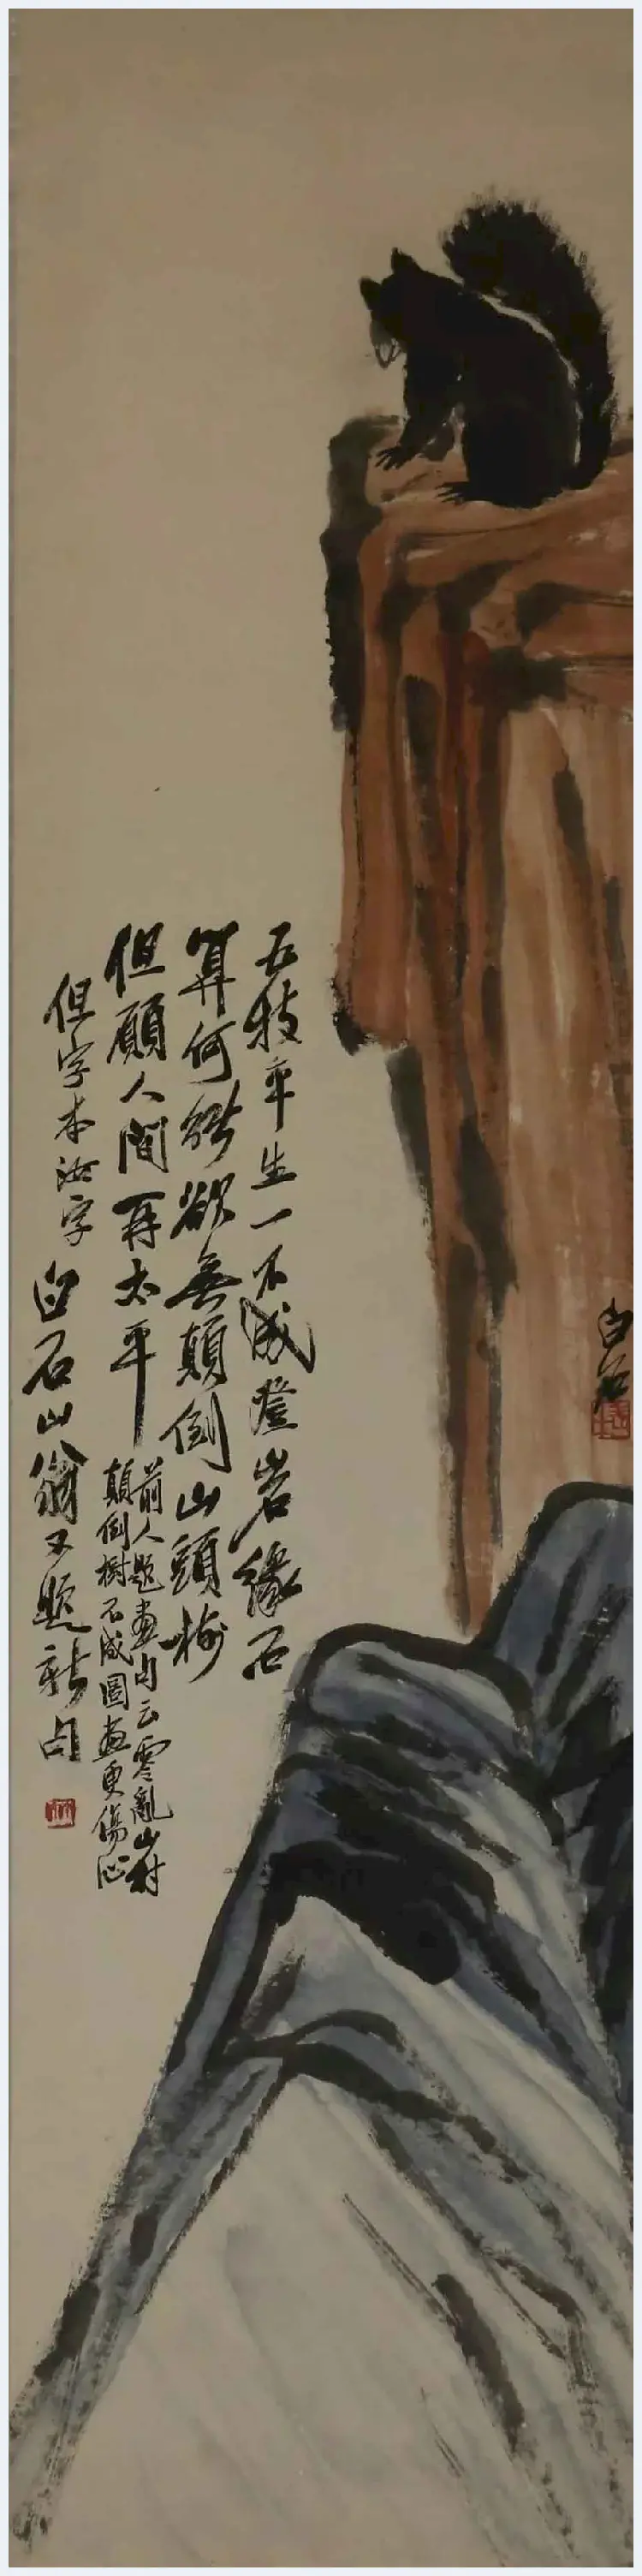 白石
五技平生一不成登岩緣石
算何能欲無顛倒山頭樹
但願人間再太平
前人題畫句云零亂山村
顛倒樹不成圖畫更傷心
但字本汝字
白石山翁又題新句